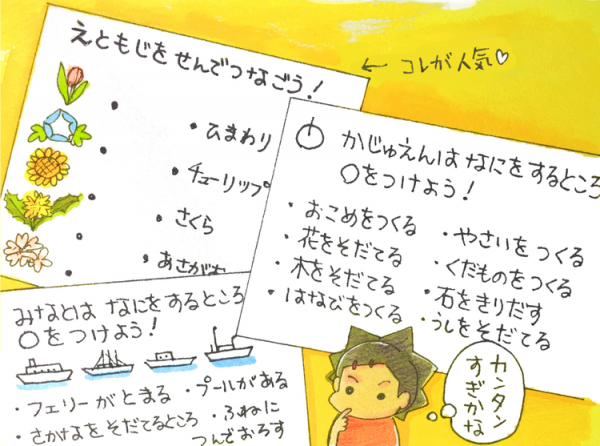 えともじをせんでつなごう！
← コレが人気♡
・ひまわり
・チューリップ
・さくら
・あさがお
かじゅえんはなにをするところ
○をつけよう！
・おこめをつくる
・花をそだてる
・木をそだてる
・はなびをつくる
・やさいをつくる
・くだものをつくる
・石をきりだす
・うしをそだてる
みなとはなにをするところ
○をつけよう！
・フェリーがとまる
・さかなをそだてるところ
・プールがある
・ふねに
つんでおろす
カンタン
すぎかな